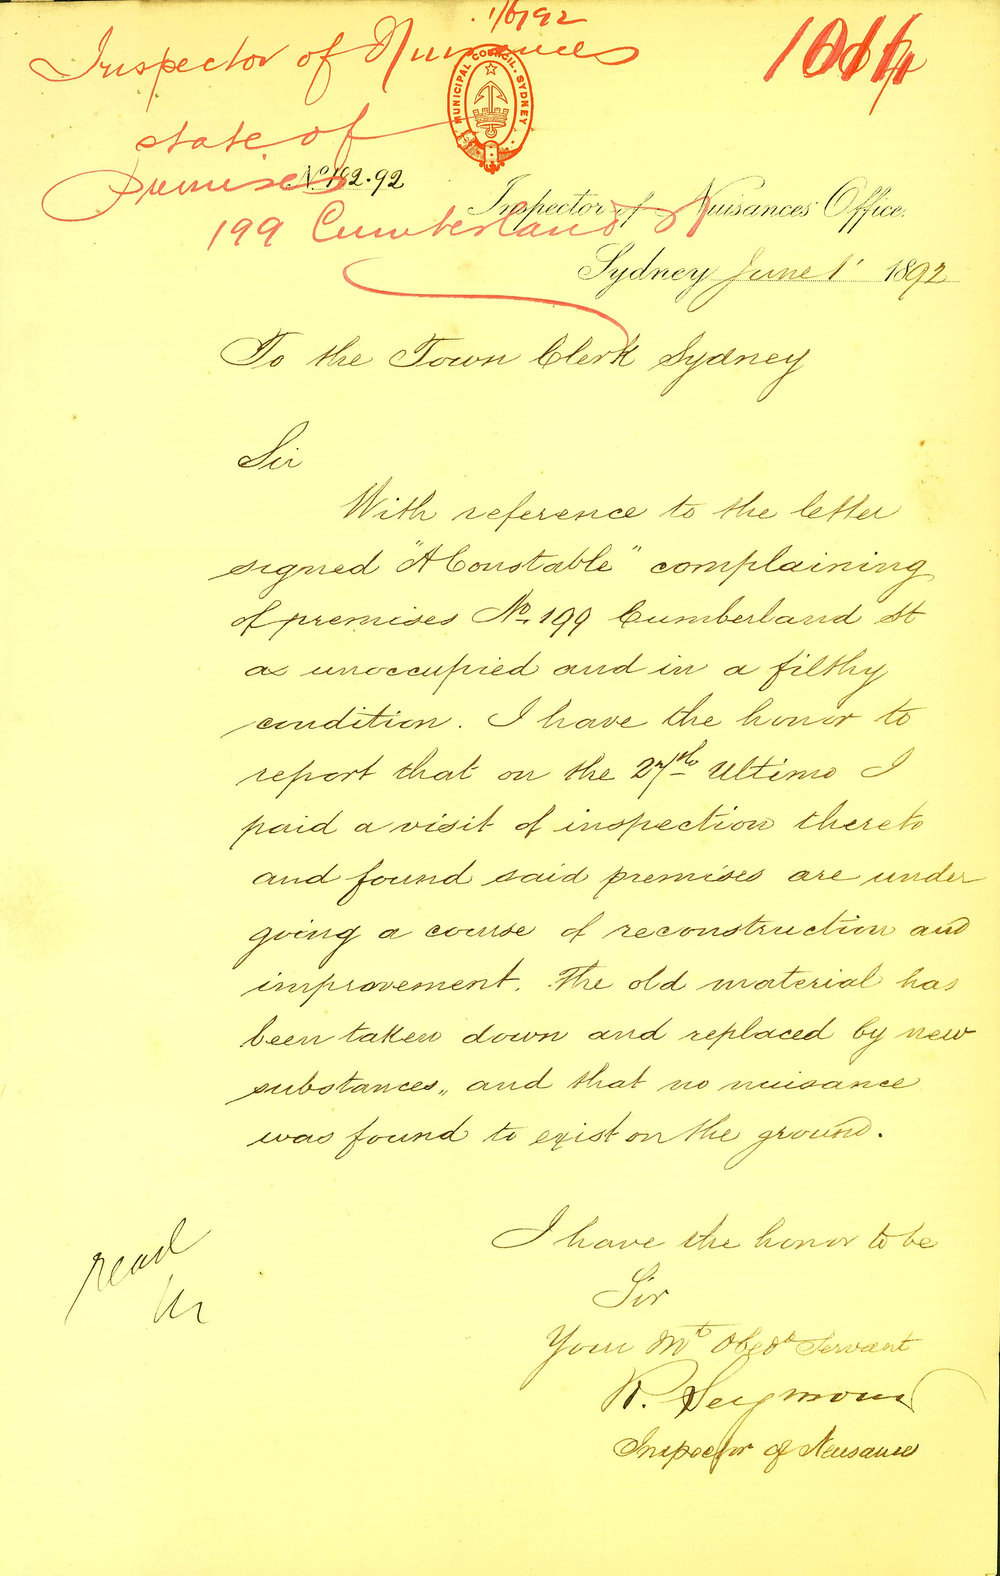 1/6/92
Inspector of Nuisances
1014
MUNICIPAL COUNCIL. SYDNEY.
state of
premises
No 182.92
Inspector of Nuisances Office.
199 Cumberland St
Sydney June 1 1892
To the Town Clerk Sydney
Sir
With reference to the letter
signed "A Constable" complaining
of premises No. 199 Cumberland St
as unoccupied and in a filthy
condition. I have the honor to
report that on the 27th Ultimo I
paid a visit of inspection thereto
and found said premises are under
going a course of reconstruction and
improvement. The old material has
been taken down and replaced by new
substances,, and that no nuisance
was found to exist on the ground.
I have the honor to be
Sir
Your Mt Obedt Servant
R. Seymour
Inspector of Nuisances
read